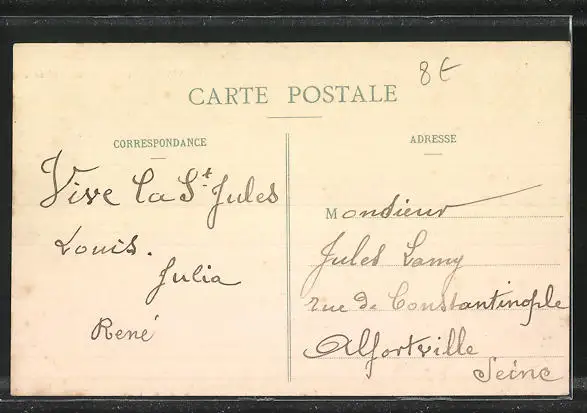 8€
CARTE POSTALE
CORRESPONDANCE
Vive la St Jules
Louis.
Julia
René
ADRESSE
Monsieur
Jules Lamy
rue de Constantinople
Alfortville
Seine